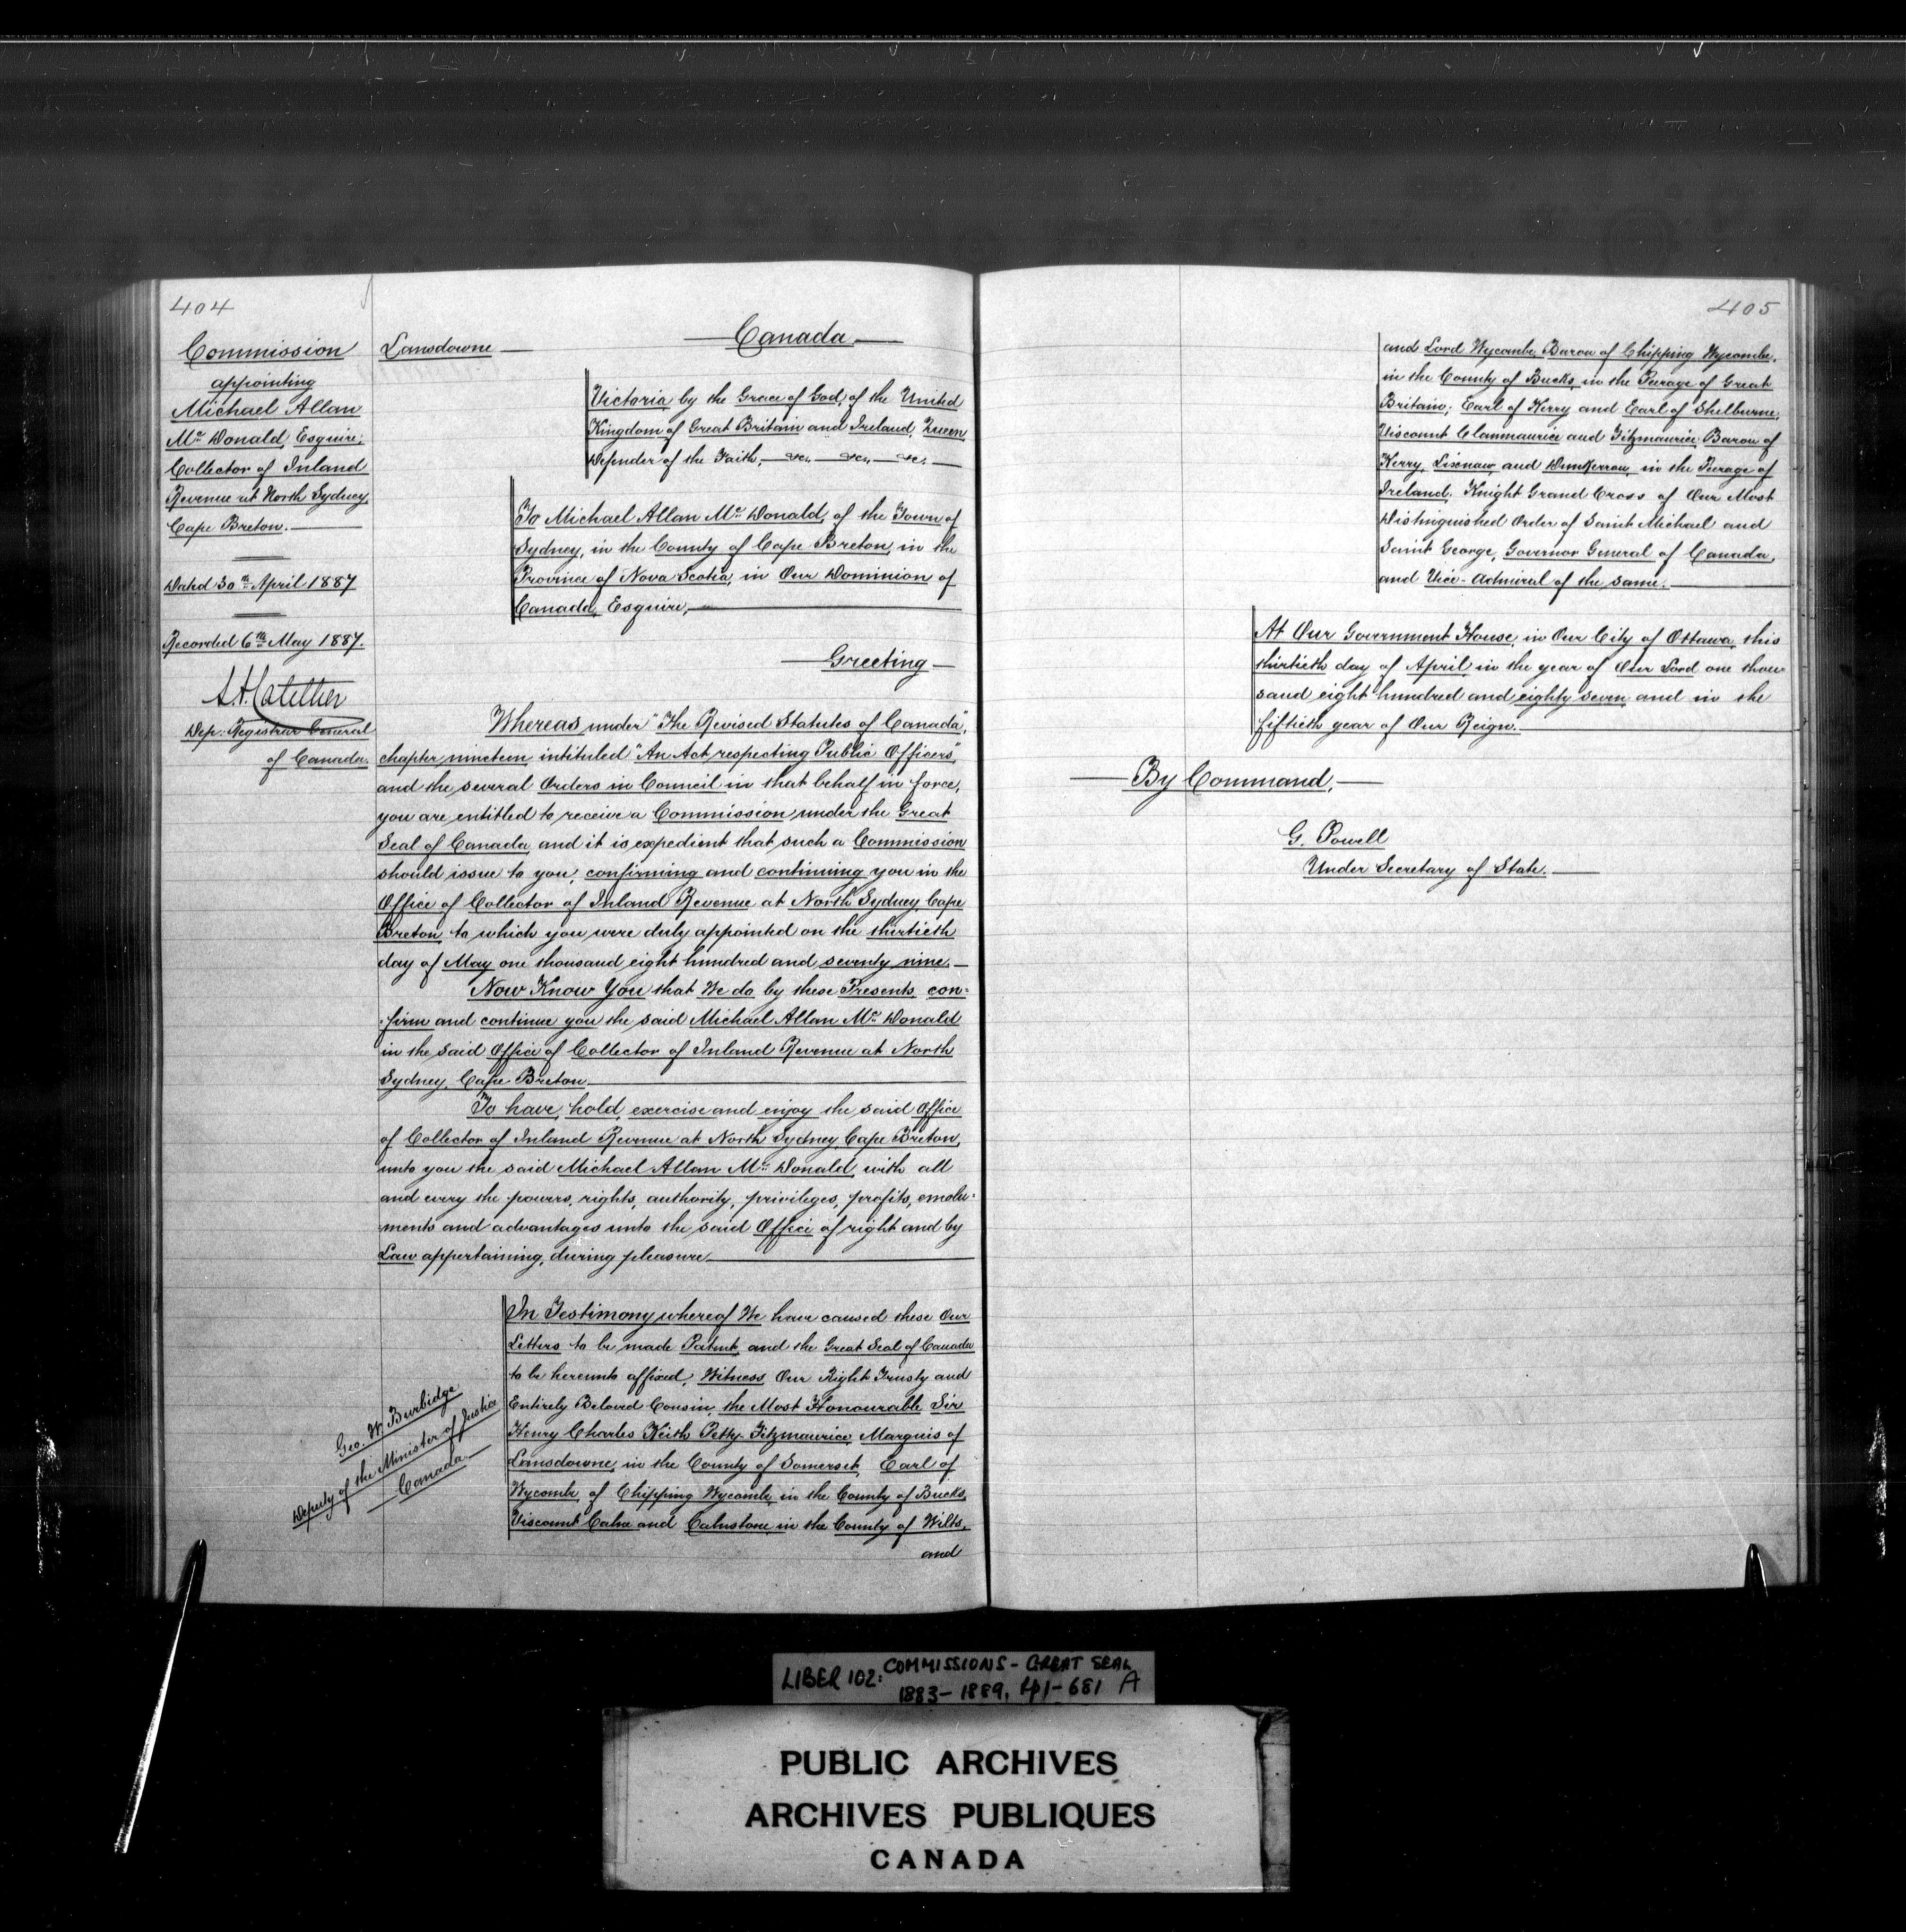 404
Commission
appointing
Michael Allan
Mc Donald, Esquire,
Collector of Inland
Revenue at North Sydney,
Cape Breton.
Dated 30th April 1887
Recorded 6th May 1887.
Dep. Registrar General
of Canada.
Lansdowne
Canada
Victoria by the Grace of God, of the United
Kingdom of Great Britain and Ireland, Queen
Defender of the Faith, &c. &c. &c.
To Michael Allan Mc Donald, of the Town of
Sydney, in the County of Cape Breton, in the
Province of Nova Scotia, in Our Dominion of
Canada, Esquire,
Greeting
Whereas under "The Revised Statutes of Canada",
chapter nineteen, intituled "An Act respecting Public Officers",
and the several Orders in Council in that behalf in force,
you are entitled to receive a Commission under the Great
Seal of Canada, and it is expedient that such a Commission
should issue to you, confirming and continuing you in the
Office of Collector of Inland Revenue at North Sydney, Cape
Breton, to which you were duly appointed on the thirtieth
day of May one thousand eight hundred and seventy nine.
Now Know You that We do by these Presents, con=
firm and continue you the said Michael Allan Mc Donald
in the said Office of Collector of Inland Revenue at North
Sydney, Cape Breton.
To have, hold, exercise and enjoy the said Office
of Collector of Inland Revenue at North Sydney, Cape Breton,
unto you the said Michael Allan Mc Donald, with all
and every the powers, rights, authority, privileges, profits, emolu=
ments and advantages unto the said Office of right and by
Law appertaining, during pleasure.
In Testimony whereof We have caused these Our
Letters to be made Patent, and the Great Seal of Canada
to be hereunto affixed, Witness Our Right Trusty and
Entirely Beloved Cousin, the Most Honourable Sir
Henry Charles Keith Petty-Fitzmaurice, Marquis of
Lansdowne, in the County of Somerset, Earl of
Wycombe, of Chipping Wycombe, in the County of Bucks,
Viscount Calne and Calnstone, in the County of Wilts,
and
Geo. W. Burbidge
Deputy of the Minister of Justice
Canada
405
and Lord Wycombe, Baron of Chipping Wycombe,
in the County of Bucks, in the Peerage of Great
Britain; Earl of Kerry and Earl of Shelburne,
Viscount Clanmaurice and Fitzmaurice, Baron of
Kerry, Lixnaw and Dunkerron, in the Peerage of
Ireland, Knight Grand Cross of Our Most
Distinguished Order of Saint Michael and
Saint George, Governor General of Canada,
and Vice-Admiral of the same.
At Our Government House, in Our City of Ottawa, this
thirtieth day of April in the year of Our Lord one thou=
sand eight hundred and eighty seven and in the
fiftieth year of Our Reign.
By Command,
G. Powell
Under Secretary of State.
LIBER 102: COMMISSIONS - GREAT SEAL
1883-1889, 41-681 A
PUBLIC ARCHIVES
ARCHIVES PUBLIQUES
CANADA